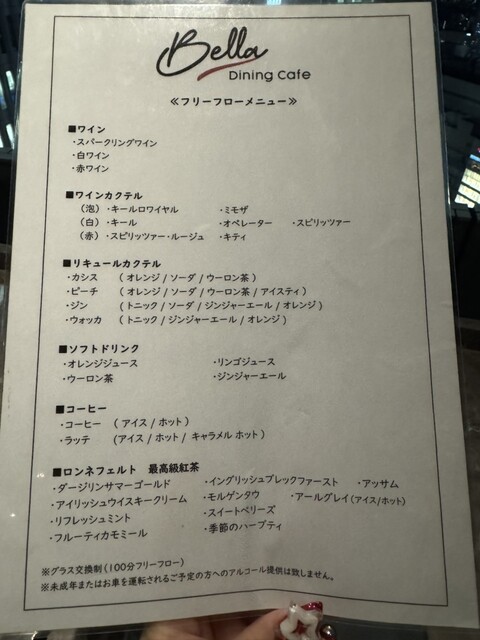 Bella
Dining Cafe
≪フリーフローメニュー≫
■ワイン
・スパークリングワイン
・白ワイン
・赤ワイン
■ワインカクテル
（泡）・キールロワイヤル ・ミモザ
（白）・キール ・オペレーター ・スピリッツァー
（赤）・スピリッツァー・ルージュ ・キティ
■リキュールカクテル
・カシス （オレンジ / ソーダ / ウーロン茶）
・ピーチ （オレンジ / ソーダ / ウーロン茶 / アイスティ）
・ジン （トニック / ソーダ / ジンジャーエール / オレンジ）
・ウォッカ （トニック / ジンジャーエール / オレンジ）
■ソフトドリンク
・オレンジジュース ・リンゴジュース
・ウーロン茶 ・ジンジャーエール
■コーヒー
・コーヒー （アイス / ホット）
・ラッテ （アイス / ホット / キャラメル ホット）
■ロンネフェルト 最高級紅茶
・ダージリンサマーゴールド ・イングリッシュブレックファースト ・アッサム
・アイリッシュウイスキークリーム ・モルゲンタウ ・アールグレイ（アイス/ホット）
・リフレッシュミント ・スイートベリーズ
・フルーティカモミール ・季節のハーブティ
※グラス交換制（100分フリーフロー）
※未成年またはお車を運転されるご予定の方へのアルコール提供は致しません。